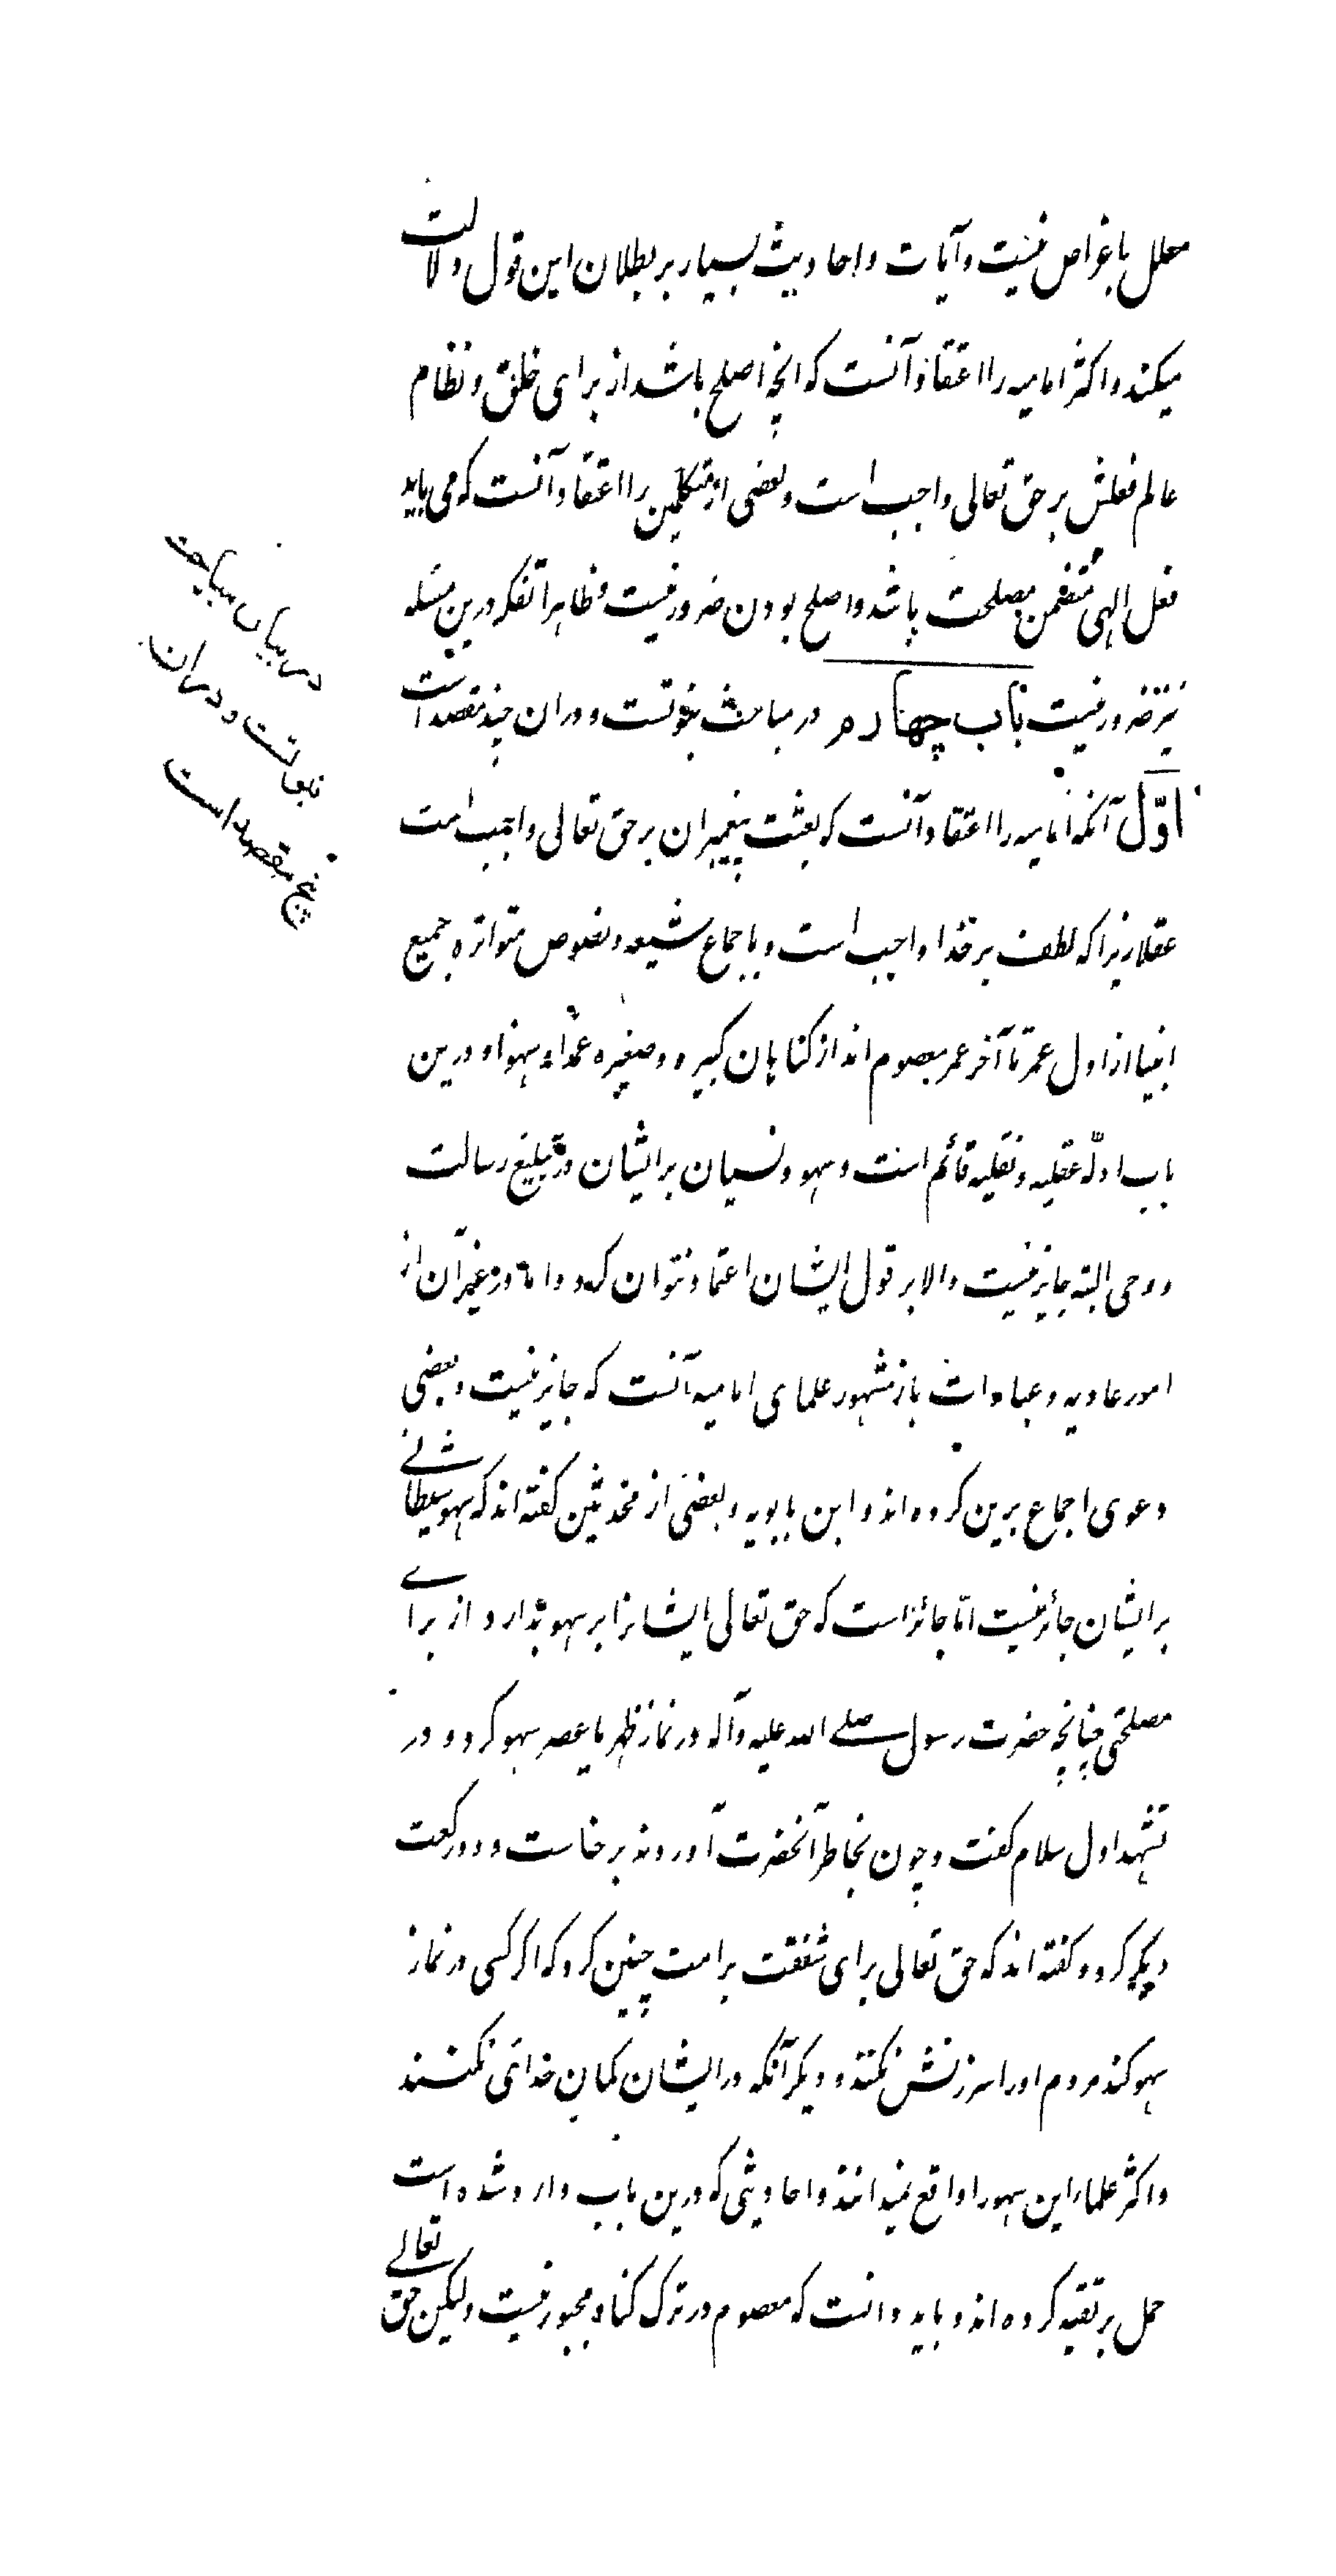 معلل باغراض نیست و آیات و احادیث بسیار بر بطلان این قول دلالت
میکند و اکثر امامیه را اعتقاد آنست که انچه اصلح باشد از برای خلق و نظام
عالم فعلش بر حق تعالی واجب است و بعضی از متکلمین را اعتقاد آنست که می باید
فعل الهی متضمن مصلحت باشد و اصلح بودن ضرور نیست و ظاهرا تفکر درین مسئله
نیز ضرور نیست باب چهارم در مباحث نبوتست و دران چند مقصد است
اوّل آنکه امامیه را اعتقاد آنست که بعثت پیغمبران بر حق تعالی واجب است
عقلا زیرا که لطف بر خدا واجب است و باجماع شیعه و نصوص متواتره جمیع
انبیا از اول عمر تا آخر عمر معصوم اند از کناهان کبیره و صغیره عمداً و سهوا و درین
باب ادلّه عقلیه و نقلیه قائم است و سهو و نسیان بر ایشان در تبلیغ رسالت
و وحی البته جایز نیست و الا بر قول ایشان اعتماد نتوان کرد و اما در غیر آن از
امور عادیه و عبادات باز مشهور علمای امامیه آنست که جایز نیست و بعضی
دعوی اجماع برین کرده اند و ابن بابویه و بعضی از محدثین کفته اند که سهو شیطانی
بر ایشان جائز نیست امّا جائز است که حق تعالی ایشانرا بر سهو بدارد از برای
مصلحتی چنانچه حضرت رسول صلی الله علیه و آله در نماز ظهر یا عصر سهو کرد و در
تشهد اول سلام کفت و چون بخاطر آنحضرت آوردند برخاست و دو رکعت
دیکر کرد و کفته اند که حق تعالی برای شفقت بر امت چنین کرد که اکر کسی در نماز
سهو کند مردم او را سرزنش نکنند و دیکر آنکه در ایشان کمان خدائی نکنند
و اکثر علما این سهو را واقع نمیدانند و احادیثی که درین باب وارد شده است
حمل بر تقیه کرده اند و باید دانست که معصوم در ترک کناه مجبور نیست و لیکن حق تعالی
در بیان مباحث
نبوتست و دران
پنج مقصد است